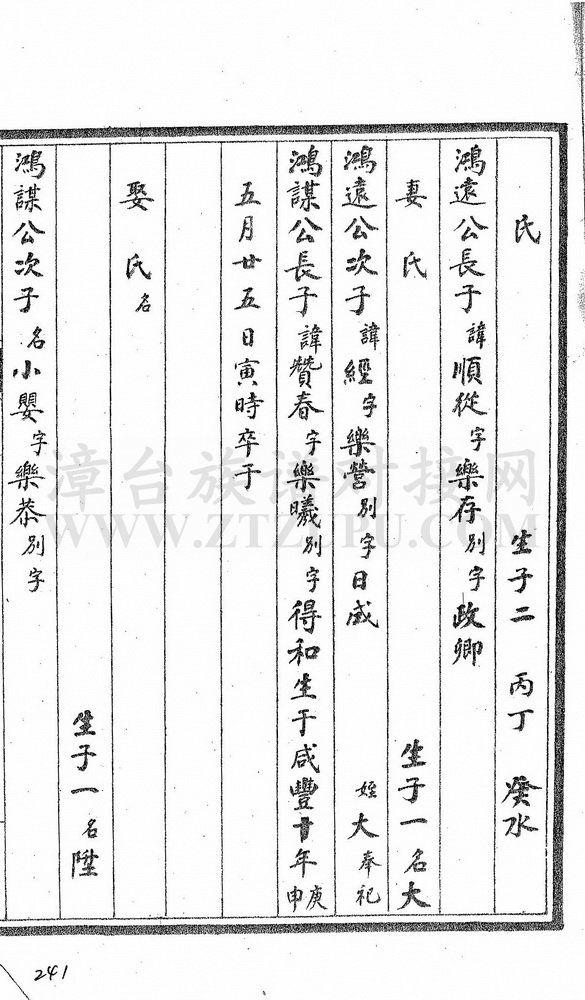 氏 生子二 丙丁 癸水
鴻遠公長子諱順從字樂存別字政卿
妻氏 生子一名大
鴻遠公次子諱經字樂營別字日威 姪大奉祀
鴻謀公長子諱贊春字樂曦別字得和生于咸豐十年庚申
五月廿五日寅時卒于
娶氏名
生子一名陞
鴻謀公次子名小嬰字樂恭別字
漳台族谱对接网
WWW.ZTZUPU.COM
241